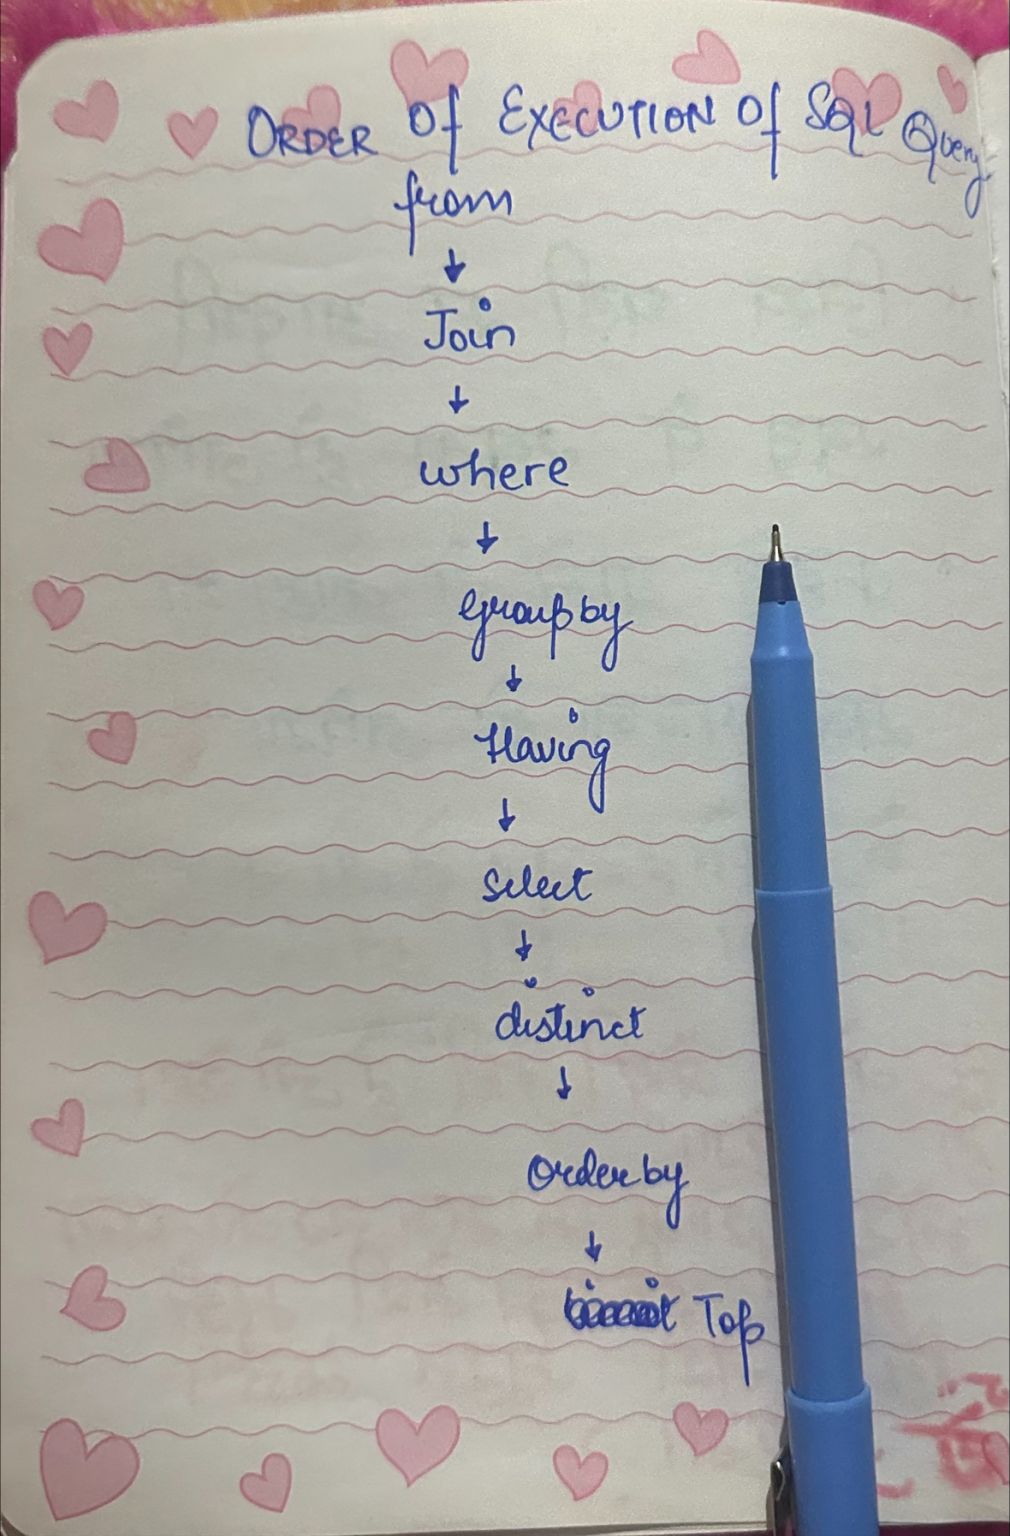 ORDER Of EXECUTION Of SQL Query
from
↓
Join
↓
where
↓
group by
↓
Having
↓
Select
↓
distinct
↓
Order by
↓
Top